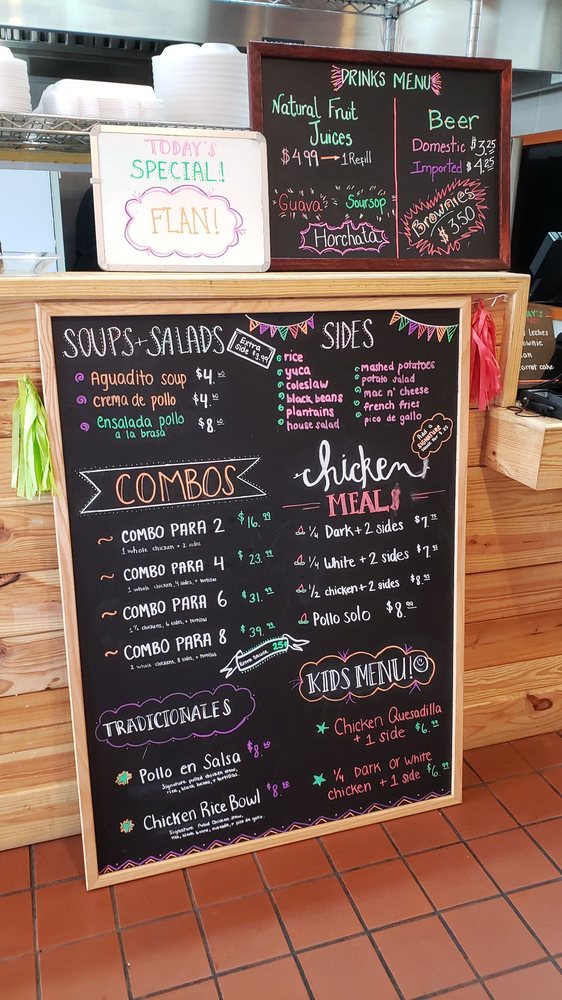 TODAY'S
SPECIAL!
FLAN!
DRINKS MENU
Natural Fruit
Juices
$4.99 → 1 Refill
Guava
Soursop
Horchata
Beer
Domestic $3.25
Imported $4.25
Brownies
$3.50
SOUPS+SALADS
Extra
side $3.99
Aguadito soup $4.
crema de pollo $4.
ensalada pollo $8.
a la brasa
SIDES
rice
yuca
coleslaw
black beans
plantains
house salad
mashed potatoes
potato salad
mac n' cheese
french fries
pico de gallo
Add a
COMBOS
COMBO PARA 2 $16.99
1 whole chicken + 2 sides
COMBO PARA 4 $23.99
1 whole chicken, 4 sides, + tortillas
COMBO PARA 6 $31.99
1 ½ chickens, 6 sides, + tortillas
COMBO PARA 8 $39.99
2 whole chickens, 8 sides, + tortillas
Extra sauce 25¢
chicken
MEALS
¼ Dark + 2 sides $7.
¼ White + 2 sides $7.
½ chicken + 2 sides $8.
Pollo solo $8.
KIDS MENU!
Chicken Quesadilla
+ 1 side $6.
¼ Dark or White
chicken + 1 side $6.
TRADICIONALES
Pollo en Salsa $8.
Signature pulled chicken stew,
rice, black beans, + tortillas
Chicken Rice Bowl $8.
Signature Pulled Chicken stew,
rice, black beans, avocado, + pico de gallo